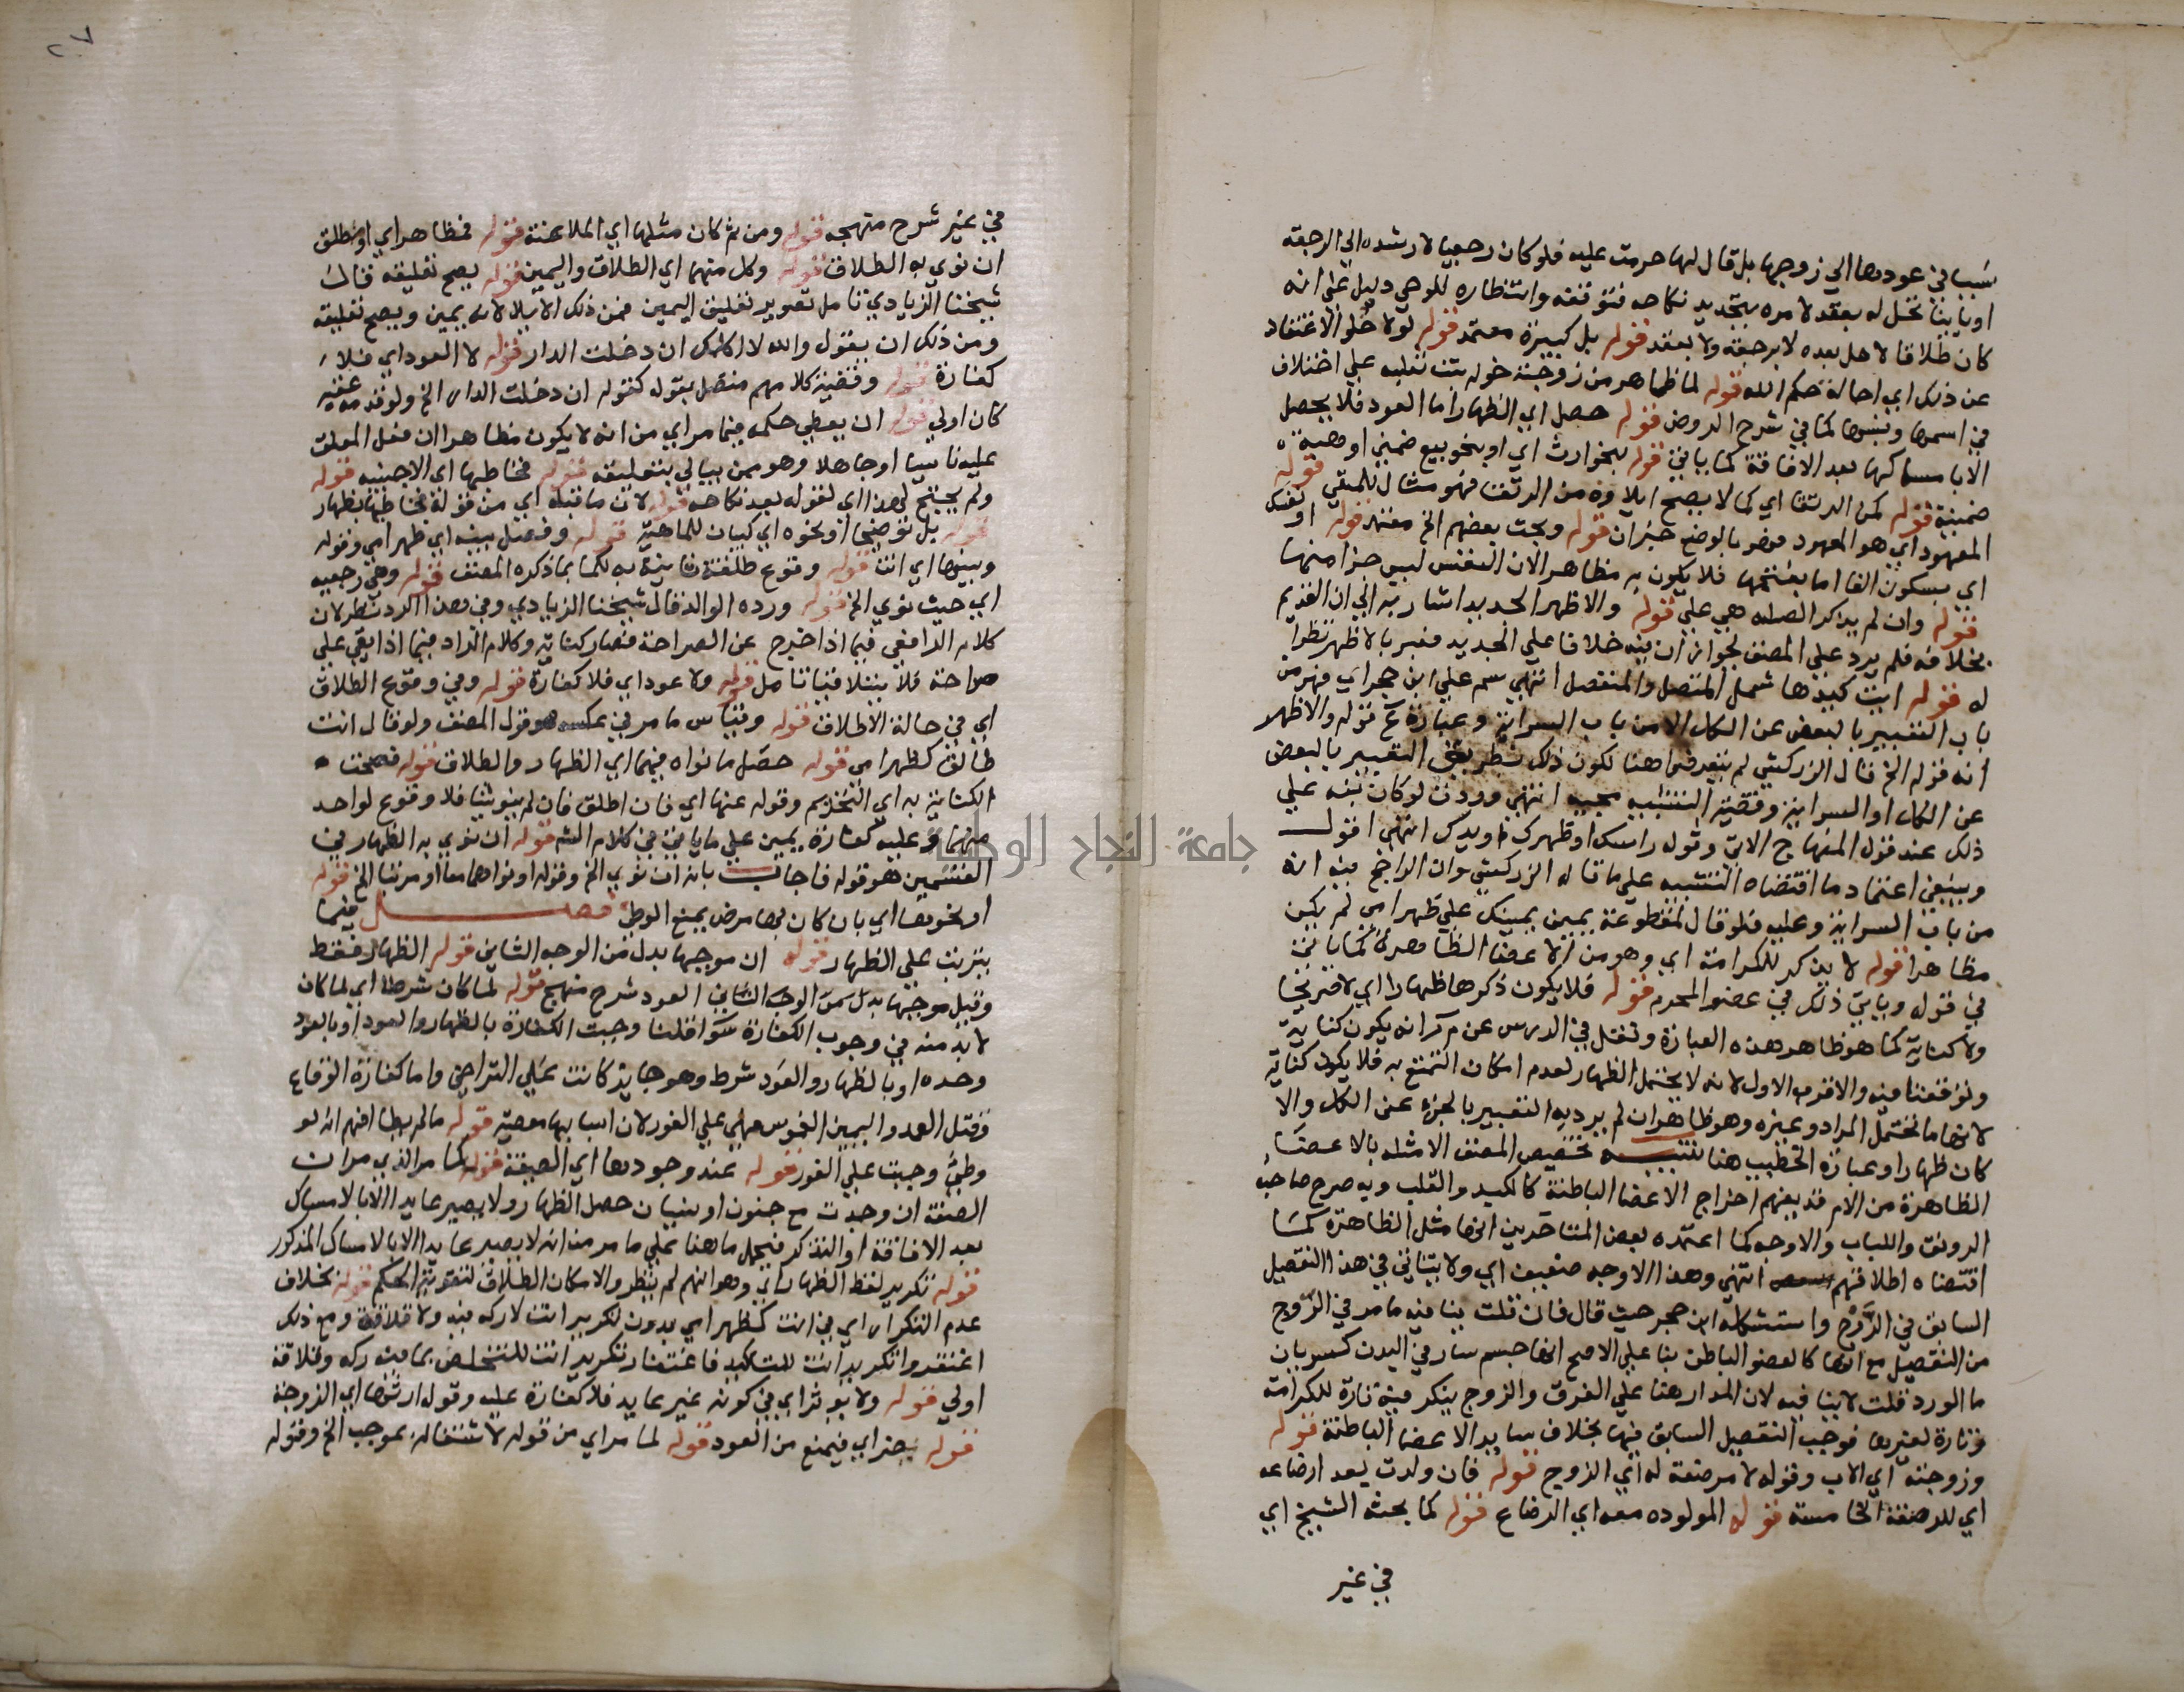 سببا في عودها الي زوجها بل قال لها حرمت عليه فلو كان رجعيا لارشده الي الرجعة
او باينا تحل له بعقد لامره بتجديد نكاحه فتوقفه وانتظاره للوحي دليل علي انه
كان طلاقا لا حل بعده لا برجعة ولا بعقد قوله بل كبيرة معتمد قوله لولا خلو الاعتقاد
عن ذلك اي احالة حكم الله قوله لما ظاهر من زوجته خوله بنت ثعلبه علي اختلاف
في اسمها ونسبها كما في شرح الروض قوله حصل اي الظهار اما العود فلا يحصل
الا بامساكها بعد الافاقة كما ياتي قوله بخوارث اي او بنحو بيع ضمني او هبة
ضمنية قوله لمن الرتقا اي كما لا يصح ايلاوه من الرتقا فهو مثال للمنفي قوله
المعهود اي هو المعهود موضوعا بالوضع خبر ان قوله وبحث بعضهم الخ معتمد قوله او نفسك
اي بسكون الفا اما بفتحها فلا يكون به مظاهرا لان النفس ليس جزا منها
قوله وان لم يذكر الصلة هي علي قوله والاظهر الجديد اشار به الي ان القديم
بخلافه فلم يرد علي المصنف لجواز ان فيه خلافا علي الجديد فعبر بالاظهر نظرا
له قوله انت كيدها شمل المتصل والمنفصل انتهي سم علي ابن حجر اي فهو من
باب التعبير بالبعض عن الكل لا من باب السراية وعبارة ع قوله والاظهر
انه قوله الخ قال الزركشي لم يتعرضوا هنا لكون ذلك بطريق التعبير بالبعض
عن الكل او السراية وقضية التشبيه مجيئه انتهي وودت لو كان نبه علي
ذلك عند قول المنهاج الاتي وقوله راسك او ظهرك او يدك انتهي اقول
وينبغي اعتماد ما اقتضاه التشبيه علي ما قاله الزركشي وان الراجح فيه انه
من باب السراية وعليه فلو قال لمقطوعة يمين يمينك علي كظهر امي لم يكن
مظاهرا قوله لا يذكر للكرامة اي وهو من الاعضا الظاهرة كما ياتي
في قوله وياتي ذلك في عضو المحرم قوله فلا يكون ذكرها ظهارا اي لا صريحا
ولا كناية كما هو ظاهر هذه العبارة ونقل في الدرس عن م ر انه يكون كناية
وتوقفنا فيه والاقرب الاول لانه لا يحتمل الظهار لعدم امكان التمتع به فلا يكون كناية
لانها ما تحتمل المراد وغيره وهو ظاهر ان لم يرد به التعبير بالجزء عن الكل والا
كان ظهارا وعبارة الخطيب هنا تنبيه تخصيص المصنف الامثله بالاعضا
الظاهرة من الام قد يفهم اخراج الاعضا الباطنة كالكبد والقلب وبه صرح صاحب
الرونق واللباب والاوجه كما اعتمده بعض المتاخرين انها مثل الظاهرة كما
اقتضاه اطلاقهم انتهي وهذا الاوجه ضعيف اي ولا يتاتي في هذا التفصيل
السابق في الروح واستشكله ابن حجر حيث قال فان قلت ينافيه ما مر في الروح
من التفصيل مع انها كالعضو الباطن بنا علي الاصح انها جسم سار في البدن كسريان
ما الورد قلت لا ينافيه لان المدار هنا علي العرف والروح يذكر فيه تارة للكرامة
وتارة لغيرها فوجب التفصيل السابق فيها بخلاف ساير الاعضا الباطنة قوله
وزوجته اي الاب وقوله لا مرضعة له اي الزوج قوله فان ولدت بعد ارضاعه
اي للرضعة الخامسة قوله المولوده معه اي الرضاع قوله كما بحثه الشيخ اي
في غير
في غير شرح منهجه قوله ومن ثم كان مثلها اي الملاعنة قوله فمظاهر اي او مطلق
ان نوي به الطلاق قوله وكل منهما اي الطلاق واليمين قوله يصح تعليقه قال
شيخنا الزيادي تامل تصوير تعليق اليمين فمن ذلك الايلا لانه يمين ويصح تعليقه
ومن ذلك ان يقول والله لا اكلمك ان دخلت الدار قوله لا العود اي فلا
كفارة قوله وقضية كلامهم متصل بقوله كقوله ان دخلت الدار الخ ولو قدمه عقبه
كان اولي قوله ان يعطي حكمه فيما مر اي من انه لا يكون مظاهرا ان فعل المعلق
عليه ناسيا او جاهلا وهو ممن يبالي بتعليقه قوله فخاطبها اي الاجنبيه قوله
ولم يحتج لهذا اي لقوله بعد نكاحه قوله لان ما قبله اي من قوله مخاطبتها بظهار
قوله بل توضيحا او نحوه اي كبيان للماهية قوله وفصل بينه اي ظهر امي وقوله
وبينها اي انت قوله وقوع طلقة ثانية به لكما بما ذكره المصنف قوله وهي رجعيه
اي حيث نوي الخ قوله ورده الوالد قال شيخنا الزيادي وفي هذا الرد نظر لان
كلام الرافعي فيما اذا خرج عن الصراحة فصار كناية وكلام الراد فيما اذا بقي علي
صراحته فلا يتلاقيا تامل قوله ولا عود اي فلا كفارة قوله وفي وقوع الطلاق
اي في حالة الاطلاق قوله وقياس ما مر في عكسه هو قول المصنف ولو قال انت
طالق كظهر امي قوله حصل ما نواه فيهما اي الظهار والطلاق قوله فصحت
الكناية به اي التحريم وقوله عنهما اي فان اطلق فان لم ينو شيا فلا وقوع لواحد
منهما وعليه كفارة يمين علي ما ياتي في كلام الشم قوله ان نوي به الظهار في
القسمين هو قوله فاجاب بانه ان نوي الخ وقوله او نواهما معا او مرتبا الخ قوله
او نحوها اي بان كان بها مرض يمنع الوطئ فصل فيما
يترتب علي الظهار قوله ان موجبها بدل من الوجه الثاني قوله الظهار فقط
وقيل موجبها بدل من الوجه الثاني العود شرح منهج قوله لما كان شرطا اي لما كان
لا بد منه في وجوب الكفارة سوا قلنا وجبت الكفارة بالظهار والعود او بالعود
وحده او بالظهار والعود شرط وهو جايز كانت علي التراخي واما كفارة الوقاع
وقتل العمد واليمين الغموس فهي علي الفور لان اسبابها معصية قوله ما لم يطا افهم انه لو
وطئ وجبت علي الفور قوله عند وجودها اي الصفة قوله كما مر الذي مر ان
الصفة ان وجدت مع جنون او نسيان حصل الظهار ولا يصير عايدا الا بالامساك
بعد الافاقة او التذكر فيحمل ما هنا علي ما مر من انه لا يصير عايدا الا بالامساك المذكور
قوله تكرير لفظ الظهار اي وهو انهم لم ينظروا لامكان الطلاق لتقوية الحكم قوله بخلاف
عدم التكرار اي في انت كظهر امي بدون تكرير انت لا ركة فيه ولا قلاقة ومع ذلك
اغتفروا تكرير انت للتاكيد فاغتفار تكرير انت للتخلص بما فيه ركه وقلاقة
اولي قوله ولا يوثر اي في كونه غير عايد فلا كفارة عليه وقوله ارثها اي الزوجة
قوله بجز اي فيمنع من العود قوله لما مر اي من قوله لاشتغاله بموجب الخ وقوله